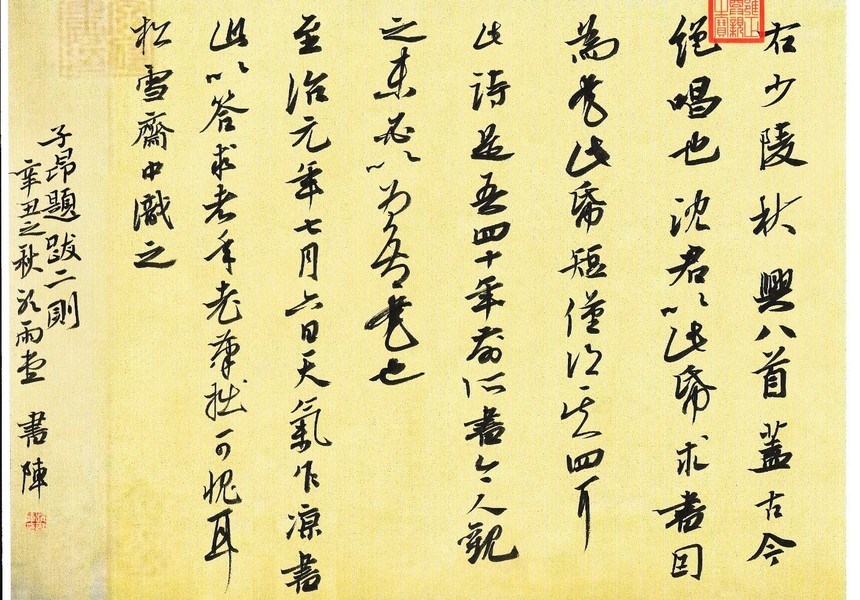 右少陵秋興八首蓋古今
絕唱也沈君以此帋求書因
為書此帋短僅得其四耳
此詩是吾四十年前所書今人觀
之未必以為吾書也
至治元年七月六日天氣乍凉書
此以答求者年老筆拙可愧耳
松雪齋中識之
子昂題跋二則
辛丑之秋聽雨堂 書陣